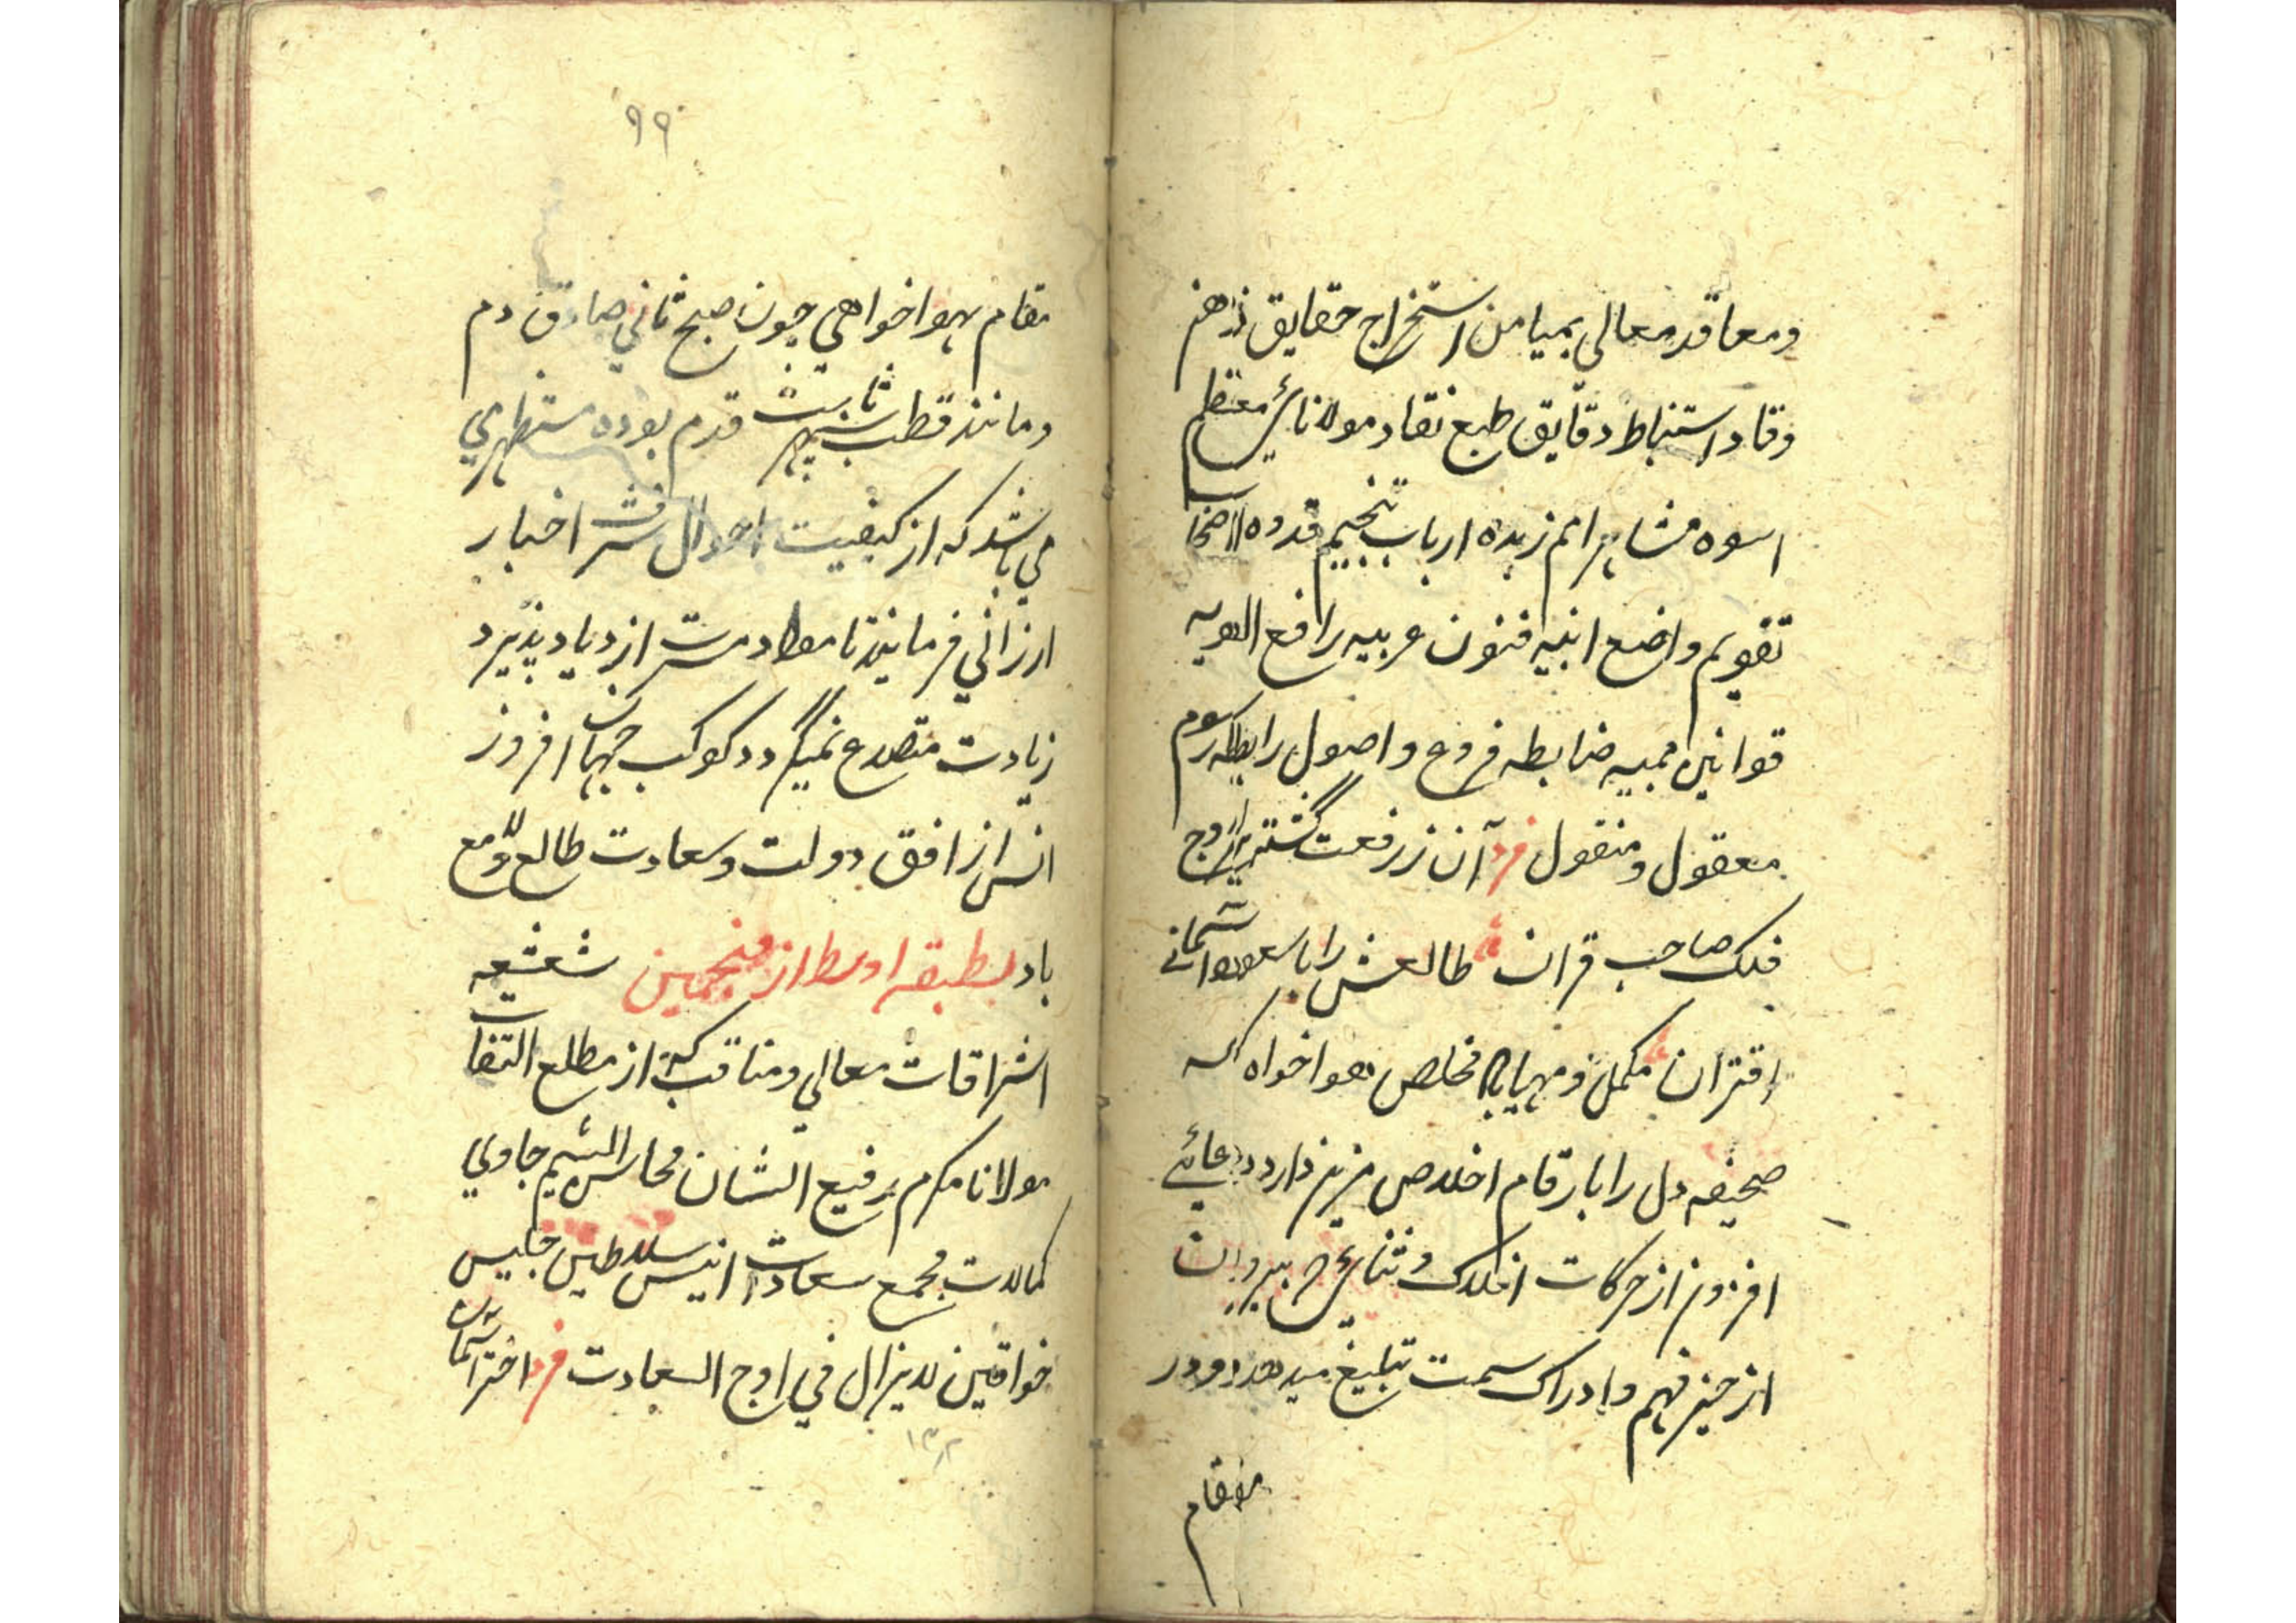 ومعاقد معالي بميامن استخراج حقايق ذهن
وقاد و استنباط دقايق طبع نقاد مولانائ معظم
اسوه مشاهر امم زبده ارباب تنجيم قدوه اصحاب
تقويم واضع ابنيه فنون عربيه رافع الويه
قوانين ضابطه فروع واصول رابطه رسوم
معقول و منقول فرد آن ز رفعت گشته بر اوج
فلك صاحب قران طالعش را با سعود آسمانے
اقتران مكمل و مهيا باد مخلص هواخواه كه
صحيفه دل را بارقام اخلاص مزين دارد دعائے
افزون از حركات افلاك و ثنائے بيرون
از حيز فهم و ادراك سمت تبليغ ميدهد و در
مقام
٩٩
مقام هواخواهي چون صبح ثاني صادق دم
و مانند قطب سپهر ثابت قدم بوده مستظهر مي
مي باشد كه از كيفيت احوال شرافت اخبار
ارزاني فرمايند تا مواد مسرت ازدياد پذيرد
زيادت متصدع نميگردد كوكب جهان افروز
انس از افق دولت و سعادت طالع و لامع
باد بطبقه اوسط از منجمين شعشعه
اشراقات معالي و مناقب كه از مطلع التفات
مولانا مكرم رفيع الشان محاسن الشيم حاوي
كمالات مجمع سعادات انيس سلاطين جليس
خواقين لا يزال في اوج السعادت فرد اختر آسمان
١٣٢